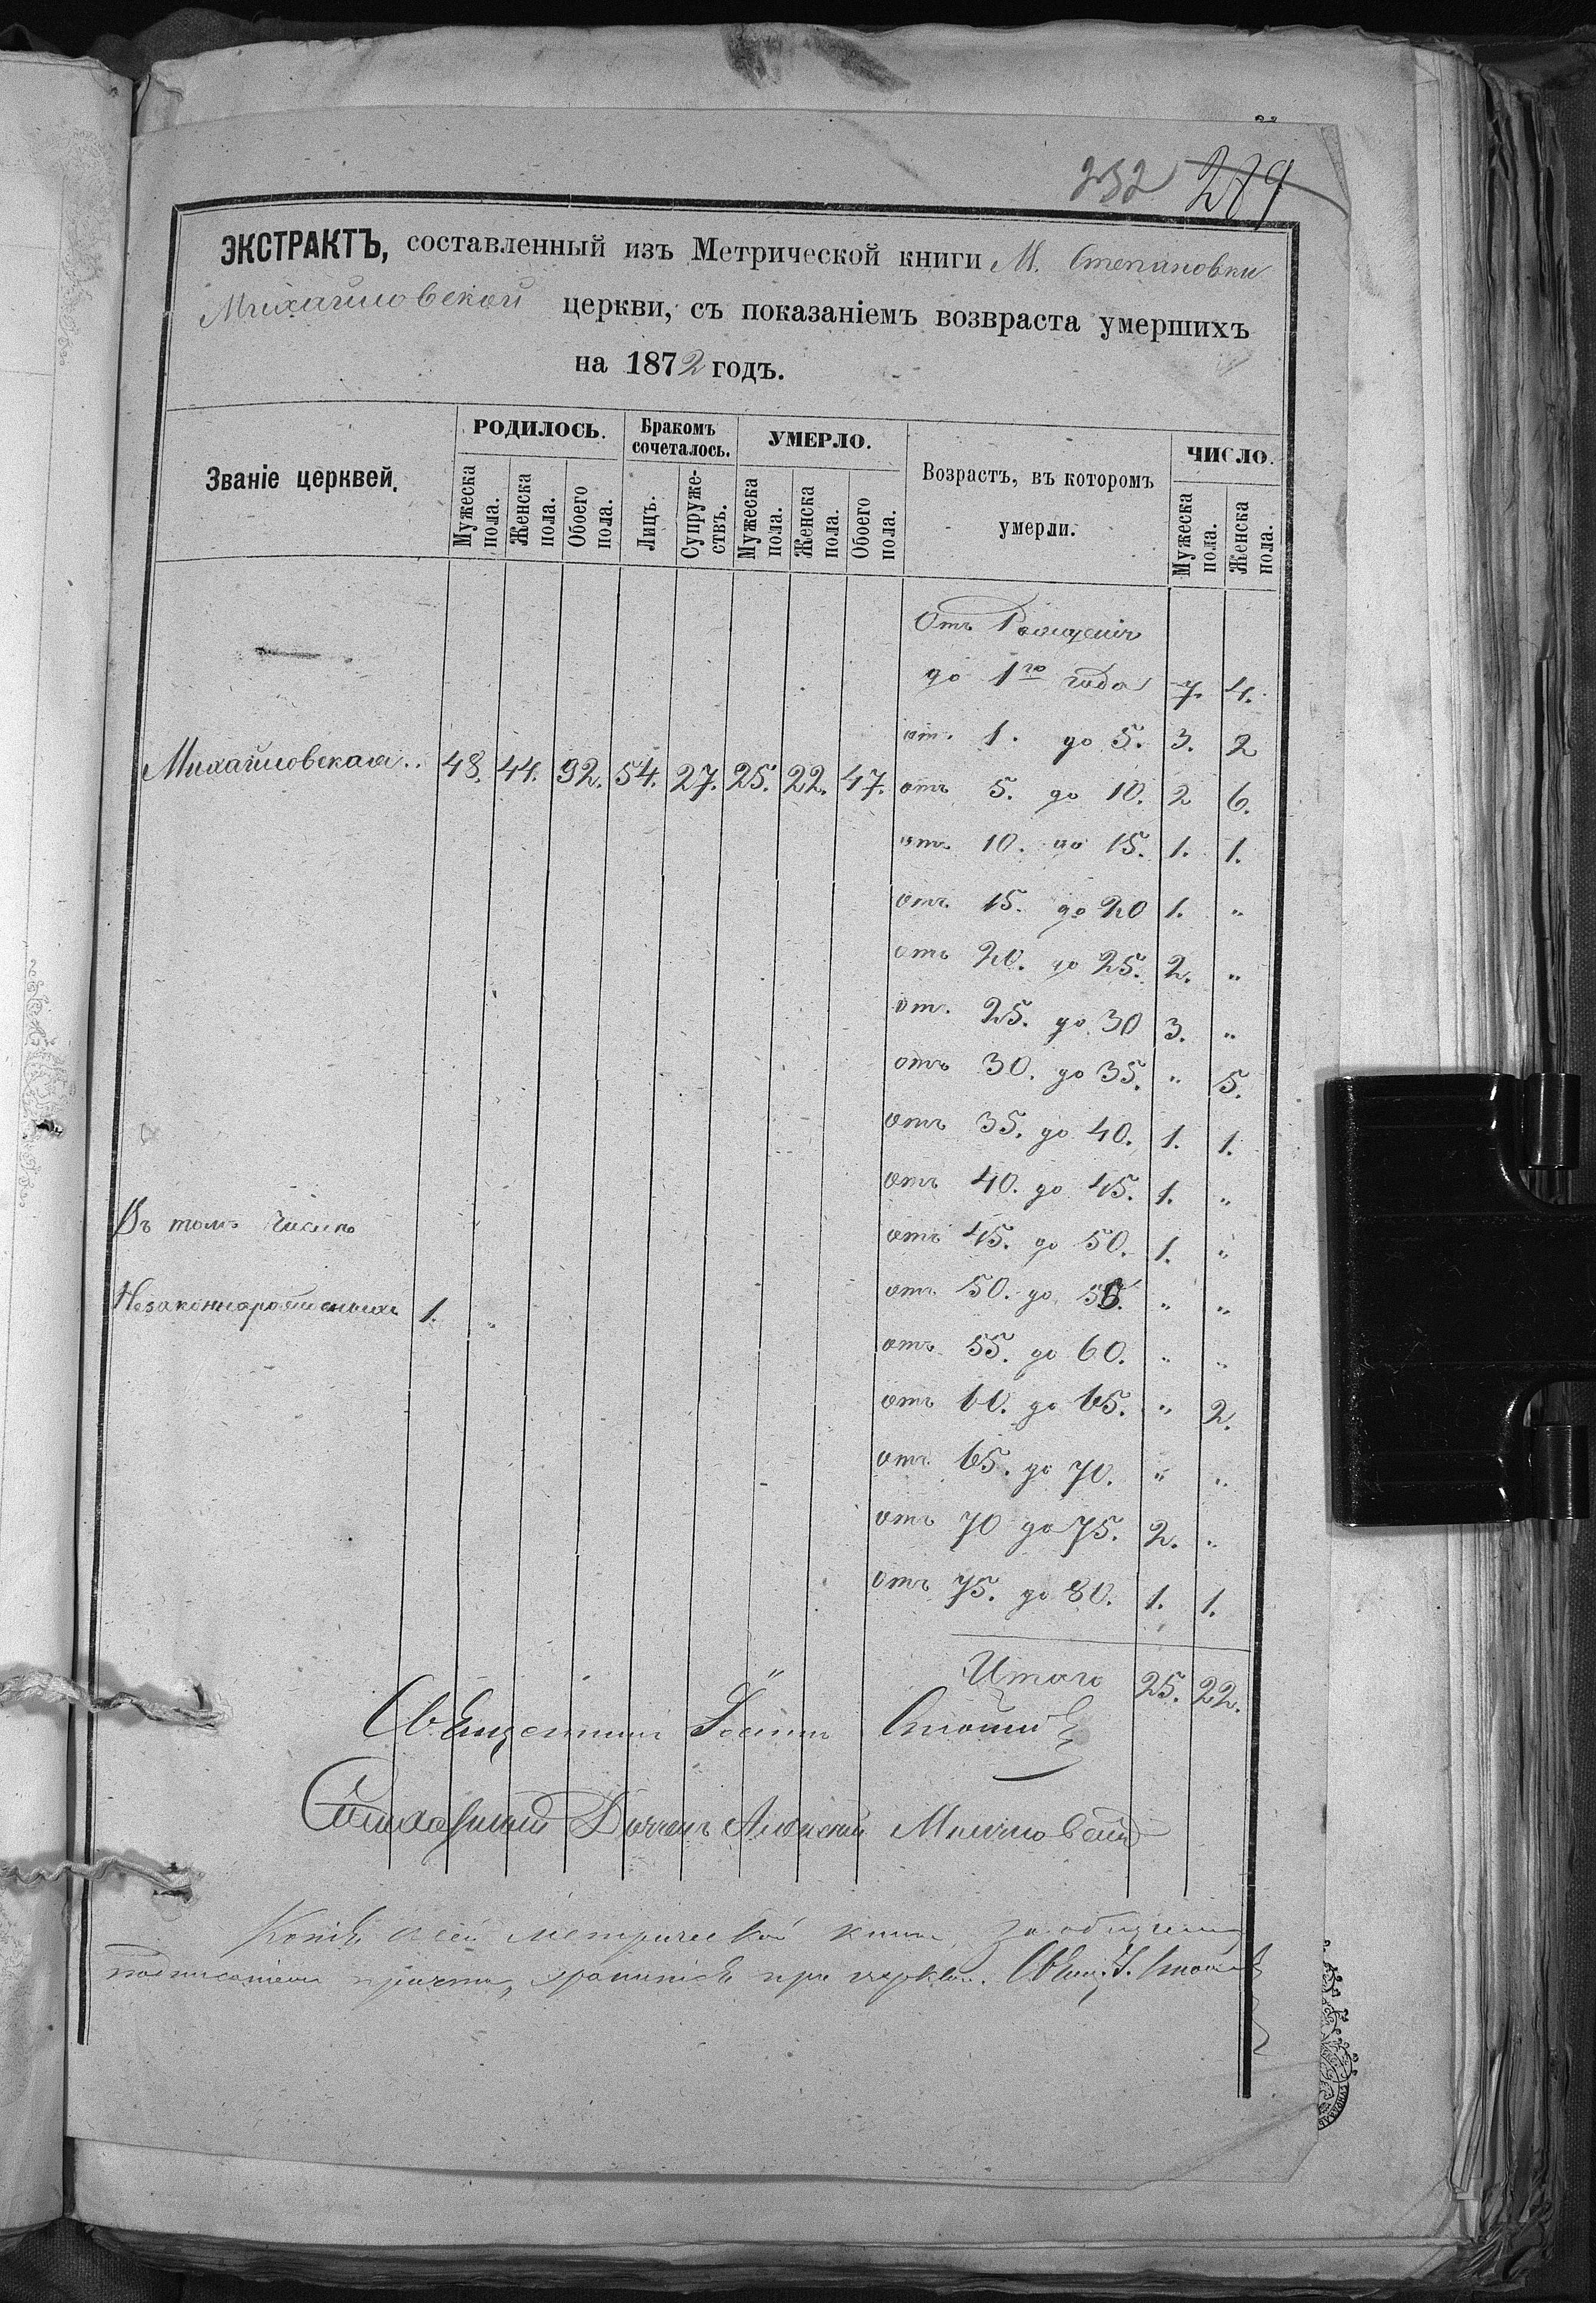 232 279
ЭКСТРАКТЪ, составленный изъ Метрической книги М. Степановки
Михайловской церкви, съ показаніемъ возвраста умершихъ
на 1872 годъ.
Званіе церквей. РОДИЛОСЬ. Бракомъ сочеталось. УМЕРЛО. Возрастъ, въ которомъ умерли. ЧИСЛО.
Мужеска пола. Женска пола. Обоего пола. Лицъ. Супружествъ. Мужеска пола. Женска пола. Обоего пола. Мужеска пола. Женска пола.
Отъ Рожденія
до 1го года 7. 4.
от. 1. до 5. 3. 2
Михайловская.. 48. 44. 92. 54. 27. 25. 22. 47.
отъ 5. до 10. 2 6.
отъ 10. до 15. 1. 1.
отъ 15. до 20 1. "
отъ 20. до 25. 2. "
от. 25. до 30 3. "
отъ 30. до 35. " 5.
отъ 35. до 40. 1. 1.
отъ 40. до 45. 1. "
Въ томъ числѣ
отъ 45. до 50. 1. "
Незаконнорожденныхъ 1. "
отъ 50. до 55. " "
отъ 55. до 60. " "
отъ 60. до 65. " 2.
отъ 65. до 70. " "
отъ 70 до 75. 2. "
отъ 75. до 80. 1. 1.
Итого 25. 22.
Священникъ Іоаннъ
Дьячекъ Алексѣй
Копія сей метрической книги, за общимъ
подписаніемъ причта, хранится при церкви. Свящ. І.